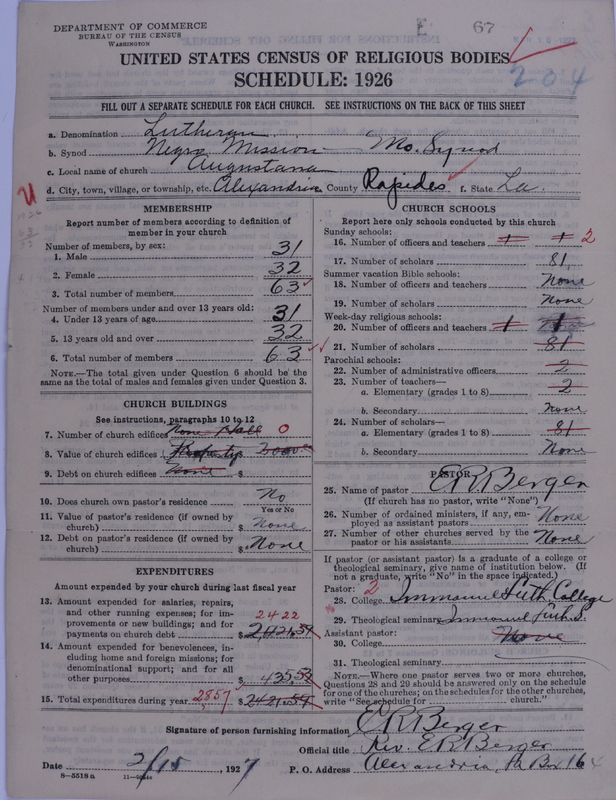 DEPARTMENT OF COMMERCE
BUREAU OF THE CENSUS
WASHINGTON
E 67
UNITED STATES CENSUS OF RELIGIOUS BODIES
204
SCHEDULE: 1926
FILL OUT A SEPARATE SCHEDULE FOR EACH CHURCH. SEE INSTRUCTIONS ON THE BACK OF THIS SHEET
a. Denomination Lutheran
b. Synod Negro Mission Mo. Synod
c. Local name of church Augustana
d. City, town, village, or township, etc. Alexandria County Rapides f. State La.
MEMBERSHIP
Report number of members according to definition of
member in your church
Number of members, by sex:
1. Male 31
2. Female 32
3. Total number of members 63
Number of members under and over 13 years old:
4. Under 13 years of age 31
5. 13 years old and over 32
6. Total number of members 63
NOTE.—The total given under Question 6 should be the
same as the total of males and females given under Question 3.
CHURCH BUILDINGS
See instructions, paragraphs 10 to 12
7. Number of church edifices None Hall 0
8. Value of church edifices Property
9. Debt on church edifices None
10. Does church own pastor's residence No
Yes or No
11. Value of pastor's residence (if owned by
church) $ None
12. Debt on pastor's residence (if owned by
church) $ None
EXPENDITURES
Amount expended by your church during last fiscal year
13. Amount expended for salaries, repairs,
and other running expenses; for im-
provements or new buildings; and for 2422
payments on church debt $ 2421.54
14. Amount expended for benevolences, in-
cluding home and foreign missions; for
denominational support; and for all
other purposes $ 435.53
15. Total expenditures during year 2857 $
CHURCH SCHOOLS
Report here only schools conducted by this church
Sunday schools:
16. Number of officers and teachers 1 1 2
17. Number of scholars 81
Summer vacation Bible schools:
18. Number of officers and teachers None
19. Number of scholars None
Week-day religious schools:
20. Number of officers and teachers 1 1
21. Number of scholars 81
Parochial schools:
22. Number of administrative officers 2
23. Number of teachers—
a. Elementary (grades 1 to 8) 2
b. Secondary None
24. Number of scholars—
a. Elementary (grades 1 to 8) 81
b. Secondary None
PASTOR
25. Name of pastor E R Berger
(If church has no pastor, write "None")
26. Number of ordained ministers, if any, em-
ployed as assistant pastors None
27. Number of other churches served by the
pastor or his assistants None
If pastor (or assistant pastor) is a graduate of a college or
theological seminary, give name of institution below. (If
not a graduate, write "No" in the space indicated.)
Pastor: 2
28. College Immanuel Luth College
29. Theological seminary Immanuel Luth. S.
Assistant pastor:
30. College None
31. Theological seminary
NOTE.—Where one pastor serves two or more churches,
Questions 28 and 29 should be answered only on the schedule
for one of the churches; on the schedules for the other churches,
write "See schedule for church."
Signature of person furnishing information E R Berger
Official title Rev. E R Berger
Date 2/15, 1927 P. O. Address Alexandria, La Box 164
8—5518 a